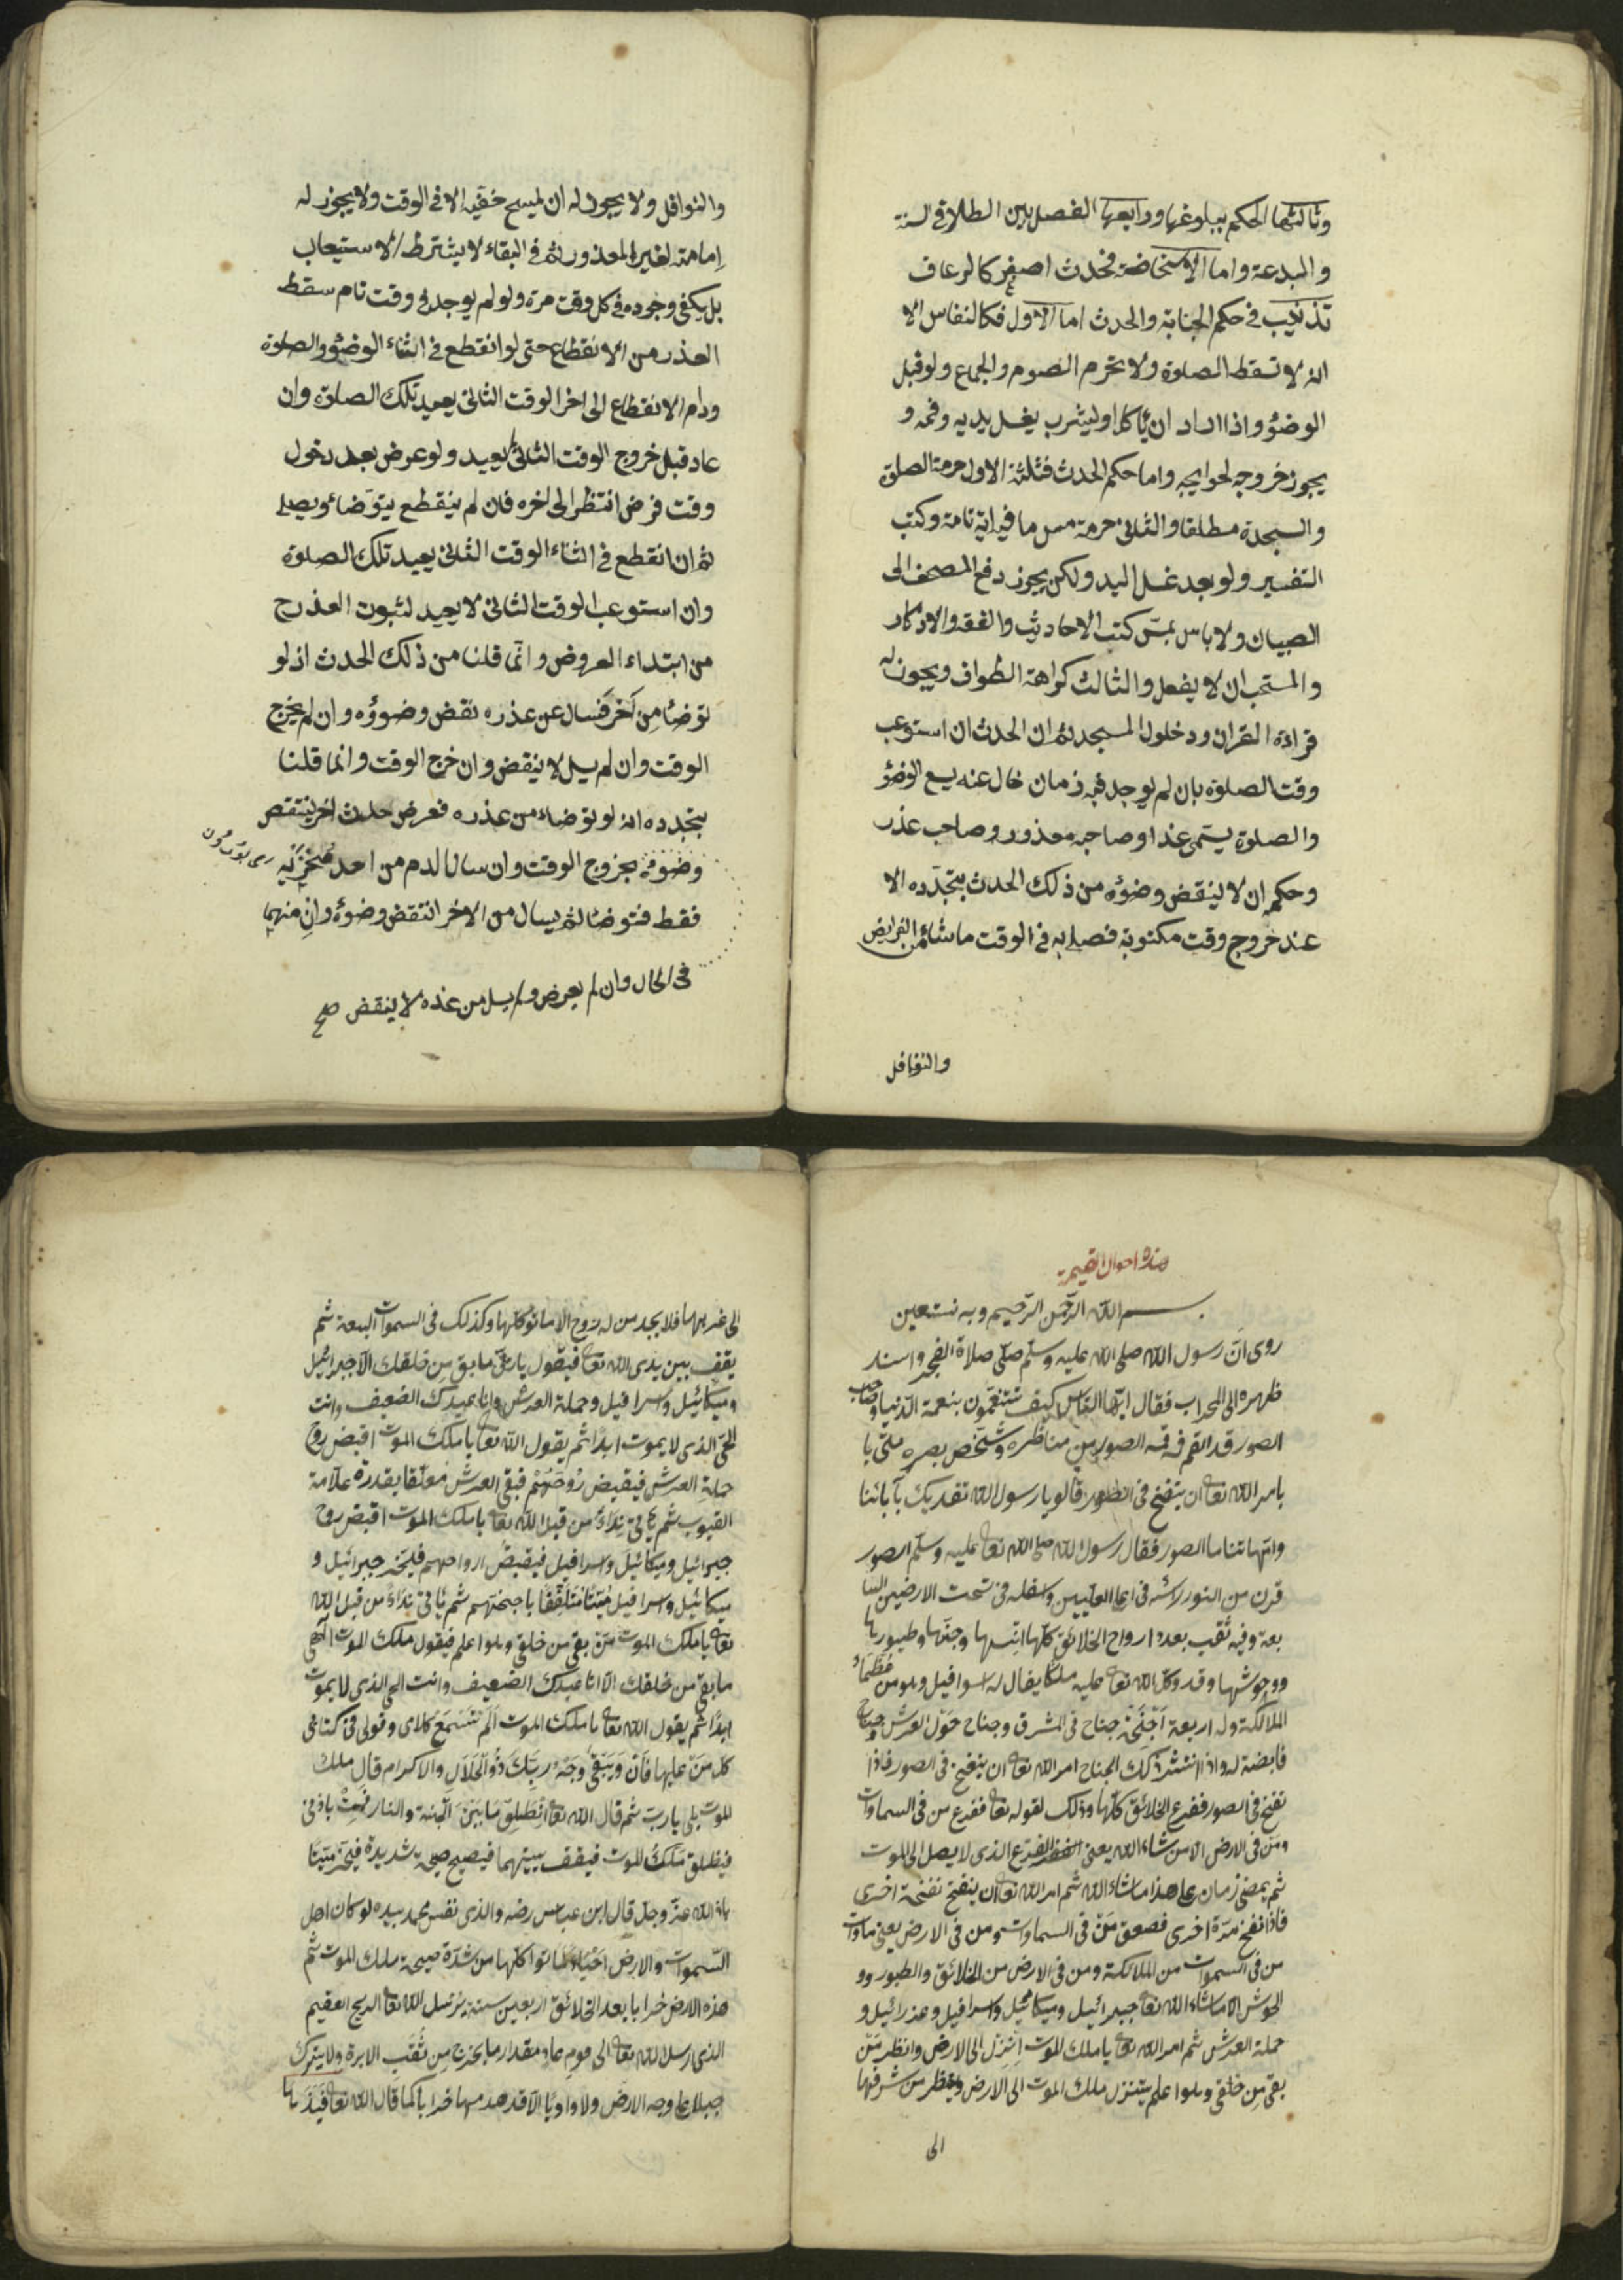 وثالثها الحكم ببلوغها ورابعها الفصل بين الطلاق السنة
والبدعة واما الاستحاضة فحدث اصغر كالرعاف
تذنيب في حكم الجنابة والحدث اما الاول فكالنفاس الا
انه لا تسقط الصلوة ولا تحرم الصوم والجماع ولو قبل
الوضوء واذا اراد ان يأكل او يشرب يغسل يديه وفمه و
يجوز خروجه لحوايجه واما حكم الحدث فثلثة الاول حرمة الصلوة
والسجدة مطلقا والثاني حرمة مس ما فيه اية تامة وكتب
التفسير ولو بعد غسل اليد ولكن يجوز دفع المصحف الى
الصبيان ولا باس بمس كتب الاحاديث والفقه والاذكار
والمستحب ان لا يفعل والثالث كراهة الطواف ويجوز له
قراءة القران ودخول المسجد ثم ان الحدث ان استوعب
وقت الصلوة بان لم يوجد فيه زمان خال عنه يسع الوضوء
والصلوة يسمى عذرا وصاحبه معذور وصاحب عذر
وحكمه ان لا ينقض وضوؤه من ذلك الحدث بتجدده الا
عند خروج وقت مكتوبة فصلى به في الوقت ما شاء من الفرايض
والنوافل
والنوافل ولا يجوز له ان يمسح خفيه الا في الوقت ولا يجوز له
امامته لغير المعذور ثم في البقاء لا يشترط الاستيعاب
بل يكفى وجوده في كل وقت مرة ولو لم يوجد في وقت تام سقط
العذر من الانقطاع حتى لو انقطع في اثناء الوضوء والصلوة
ودام الانقطاع الى اخر الوقت الثاني يعيد تلك الصلوة وان
عاد قبل خروج الوقت الثاني لا يعيد ولو عرض بعد دخول
وقت فرض انتظر الى اخره فان لم ينقطع يتوضاء ويصلي
ثم ان انقطع في اثناء الوقت الثاني يعيد تلك الصلوة
وان استوعب الوقت الثاني لا يعيد لثبوت العذر ح
من ابتداء العروض وانما قلنا من ذلك الحدث اذ لو
توضأ من آخر فسال عن عذره نقض وضوؤه وان لم يخرج
الوقت وان لم يسل لا ينقض وان خرج الوقت وانما قلنا
بتجدده انه لو توضاء من عذره فعرض حدث اخر ينتقض
وضوءه بخروج الوقت وان سال الدم من احد منخريه
فقط فتوضأ ثم يسال من الاخر انتقض وضوءه وان منهما
في الحال وان لم يعرض ولم يسل من عذره لا ينقض صح
هذه احوال القيمة
بسم الله الرحمن الرحيم وبه نستعين
روى ان رسول الله صلى الله عليه وسلم صلى صلاة الفجر واسند
ظهره الى المحراب فقال ايها الناس كيف تتنعمون بنعمة الدنيا وصاحب
الصور قد التقم في فمه الصور بين مناظره وشخص بصره متى يا
يامر الله تعا ان ينفخ في الصور قالو يا رسول الله نفديك بآبائنا
وامهاتنا ما الصور فقال رسول الله صلى الله تعا عليه وسلم الصور
قرن من النور رأسه في اعلا العليين واسفله في تحت الارضين السا
بعة وفيه ثقب بعدد ارواح الخلائق كلها انسها وجنها وطيورها
ووحوشها وقد وكل الله تعا عليه ملكا يقال له اسرافيل وهو من عظماء
الملائكة وله اربعة اجنحة جناح في المشرق وجناح حول العرش وجناح
قابضة له واذا انتشر ذلك الجناح امر الله تعا ان ينفخ في الصور فاذا
نفخ في الصور ففزع الخلائق كلها وذلك لقوله تعا ففزع من في السماوات
ومن في الارض الا من شاء الله يعنى الفزع الذى لا يصل الى الموت
ثم يمضى زمان على هذا ما شاء الله ثم امر الله تعا ان ينفخ نفخة اخرى
فاذا نفخ مرة اخرى فصعق من في السماوات ومن في الارض يعنى مات
من في السموات من الملائكة ومن في الارض من الخلائق والطيور وو
الحوش الا ما شاء الله تعا جبرائيل وميكائيل واسرافيل وعزرائيل و
حملة العرش ثم امر الله تعا يا ملك الموت انزل الى الارض وانظر من
بقى من خلقى وهو اعلم فتنزل ملك الموت الى الارض وينظر من شرقها
الى
الى غربها فلا يجد من له روح الا ماتو كلها وكذلك في السموات السبعة ثم
يقف بين يدى الله تعا فيقول يا رب ما بقى من خلقك الا جبرائيل
وميكائيل واسرافيل وحملة العرش وانا عبدك الضعيف وانت
الحى الذى لا يموت ابدا ثم يقول الله تعا يا ملك الموت اقبض روح
حملة العرش فيقبض روحهم فبقى العرش معلقا بقدرة علامة
الغيوب ثم يأتى نداء من قبل الله تعا يا ملك الموت اقبض روح
جبرائيل وميكائيل واسرافيل فيقبض ارواحهم فيخر جبرائيل و
ميكائيل واسرافيل ميتا متلففا باجنحتهم ثم يأتى نداء من قبل الله
تعا يا ملك الموت من بقى من خلقى وهو اعلم فيقول ملك الموت الهى
ما بقى من خلقك الا انا عبدك الضعيف وانت الحى الذى لا يموت
ابدا ثم يقول الله تعا يا ملك الموت الم تسمع كلامى وقولى في كتابى
كل من عليها فان ويبقى وجه ربك ذو الجلال والاكرام قال ملك
الموت بلى يا رب ثم قال الله تعا انطلق ما بين الجنة والنار فمت باذنى
فيطلق ملك الموت فيقف بينهما فيصيح صيحة شديدة فيخر ميتا
باذن الله عز وجل قال ابن عباس رضه والذى نفس محمد بيده لو كان اهل
السموات والارض احياء لماتوا كلها من شدة صيحة ملك الموت ثم
هذه الارض خرابا بعد الخلائق اربعين سنة يرسل الله تعا الريح العقيم
الذى ارسل الله تعا الى قوم عاد مقدار ما يخرج من ثقب الابرة ولا يترك
جبلا على وجه الارض ولا واديا الا قد هدمها خرابا كما قال الله تعا فيذرها